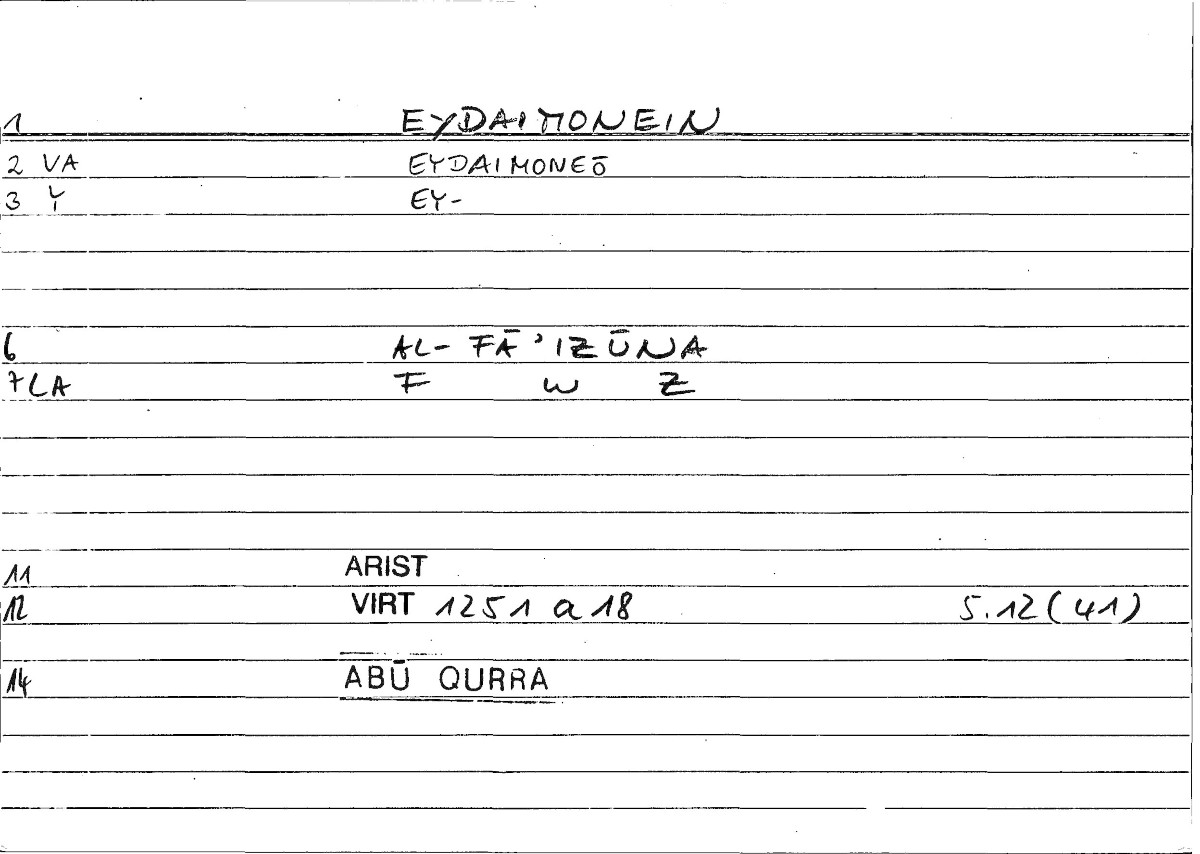 1 EYDAIMONEIN
2 VA EYDAIMONEŌ
3 Y EY-
6 AL-FĀ'IZŪNA
7 LA F W Z
11 ARIST
12 VIRT 1251 a 18 5.12(41)
14 ABŪ QURRA